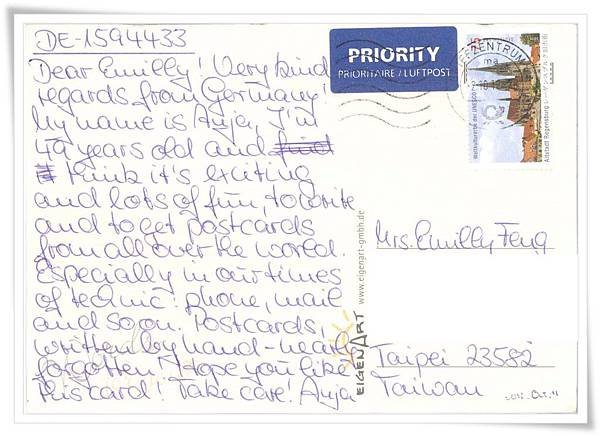 DE-1594433
Dear Emilly! Very kind
regards from Germany!
My name is Anja, I'm
49 years old and
think it's exciting
and lots of fun, to write
and to get postcards
from all over the world.
Especially in our times
of technic: phone, mail
and so on. Postcards,
written by hand-nearly
forgotten! Hope you like
this card! Take care! Anja
PRIORITY
PRIORITAIRE / LUFTPOST
EFZENTRUM
Altstadt Regensburg
www.eigenart-gmbh.de
EIGENART
Mrs. Emilly Feng
Taipei 23582
Taiwan